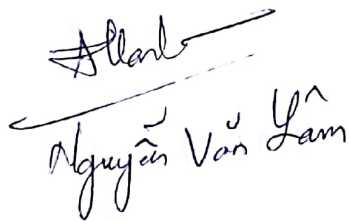 Nguyễn Văn Lâm